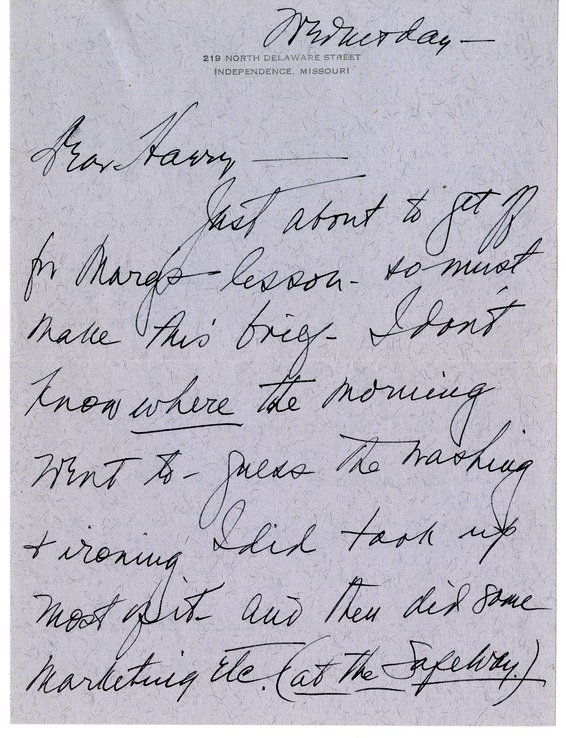 Wednesday—
219 NORTH DELAWARE STREET
INDEPENDENCE, MISSOURI
Dear Harry ——
Just about to get off
for Marg's lesson - so must
make this brief - I don't
know where the morning
went to - guess the washing
& ironing I did took up
most of it - and then did some
marketing etc. (at the Safeway.)